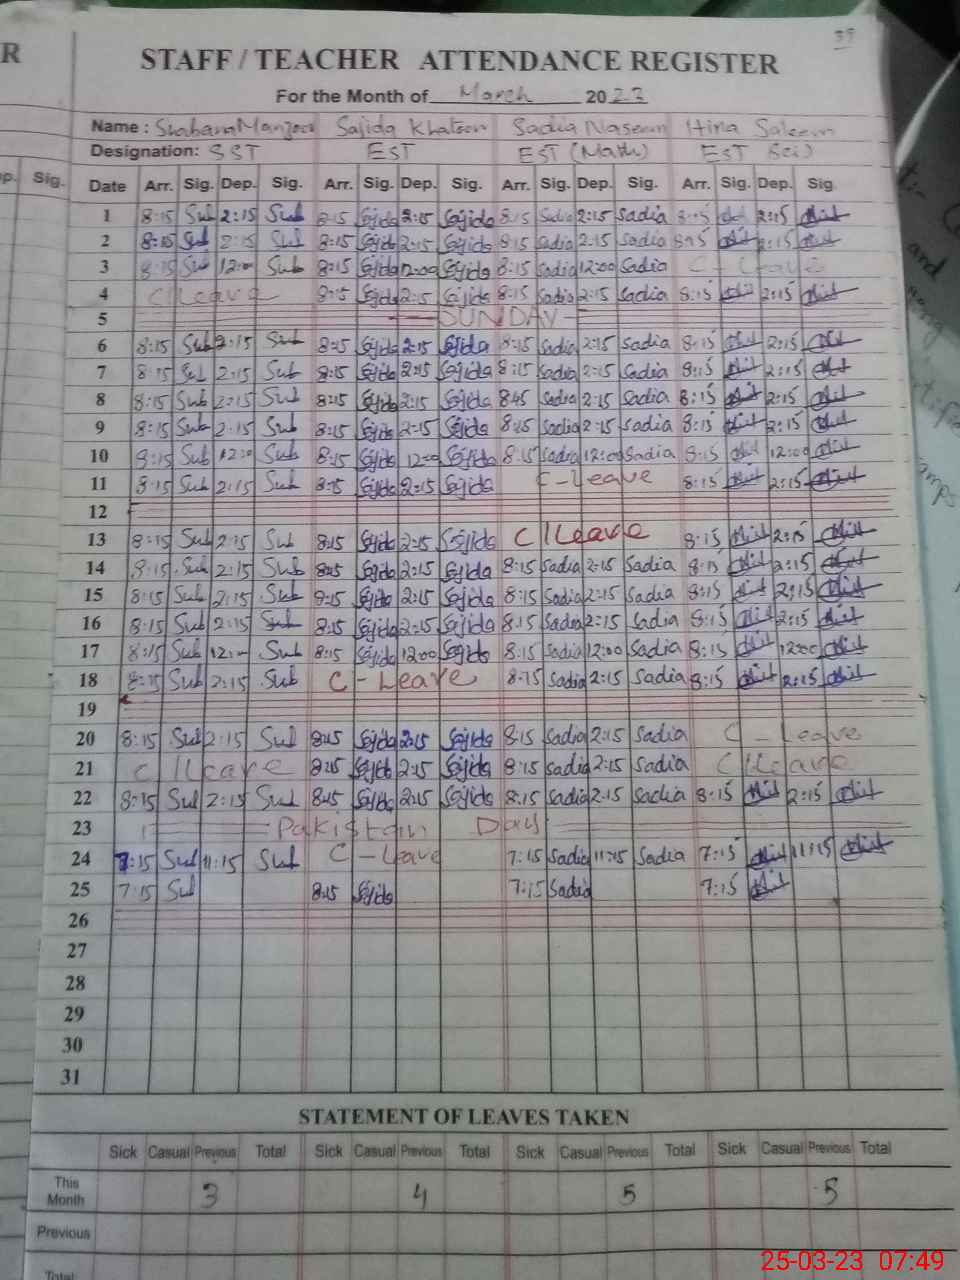 39
R
STAFF / TEACHER ATTENDANCE REGISTER
For the Month of March 2023
Name : Shabana Manzoor Sajida Khatoon Sadia Naseem Hina Saleem
Designation: SST EST EST (Math) EST Sci)
p. Sig. Date Arr. Sig. Dep. Sig. Arr. Sig. Dep. Sig. Arr. Sig. Dep. Sig. Arr. Sig. Dep. Sig.
1 8:15 Sub 2:15 Sub 8:15 Sajida 2:15 Sajida 8:15 Sadia 2:15 Sadia 8:15 2:15
2 8:15 Sub 2:15 Sub 8:15 Sajida 2:15 Sajida 8:15 Sadia 2:15 Sadia 8:15 2:15
3 8:15 Sub 12:00 Sub 8:15 Sajida 12:00 Sajida 8:15 Sadia 12:00 Sadia C - Leave
4 C/Leave 8:15 Sajida 2:15 Sajida 8:15 Sadia 2:15 Sadia 8:15 2:15
5 SUNDAY
6 8:15 Sub 2:15 Sub 8:15 Sajida 2:15 Sajida 8:15 Sadia 2:15 Sadia 8:15 2:15
7 8:15 Sub 2:15 Sub 8:15 Sajida 2:15 Sajida 8:15 Sadia 2:15 Sadia 8:15 2:15
8 8:15 Sub 2:15 Sub 8:15 Sajida 2:15 Sajida 845 Sadia 2:15 Sadia 8:15 2:15
9 8:15 Sub 2:15 Sub 8:15 Sajida 2:15 Sajida 8:15 Sadia 2:15 Sadia 8:15 2:15
10 8:15 Sub 12:00 Sub 8:15 Sajida 12:00 Sajida 8:15 Sadia 12:00 Sadia 8:15 12:00
11 8:15 Sub 2:15 Sub 8:15 Sajida 2:15 Sajida C-Leave 8:15 2:15
12
13 8:15 Sub 2:15 Sub 8:15 Sajida 2:15 Sajida C/Leave 8:15 2:15
14 8:15 Sub 2:15 Sub 8:15 Sajida 2:15 Sajida 8:15 Sadia 2:15 Sadia 8:15 2:15
15 8:15 Sub 2:15 Sub 8:15 Sajida 2:15 Sajida 8:15 Sadia 2:15 Sadia 8:15 2:15
16 8:15 Sub 2:15 Sub 8:15 Sajida 2:15 Sajida 8:15 Sadia 2:15 Sadia 8:15 2:15
17 8:15 Sub 12:00 Sub 8:15 Sajida 12:00 Sajida 8:15 Sadia 12:00 Sadia 8:15 12:00
18 8:15 Sub 2:15 Sub C - Leave 8:15 Sadia 2:15 Sadia 8:15 2:15
19
20 8:15 Sub 2:15 Sub 8:15 Sajida 2:15 Sajida 8:15 Sadia 2:15 Sadia C - Leave
21 C/Leave 8:15 Sajida 2:15 Sajida 8:15 Sadia 2:15 Sadia C/Leave
22 8:15 Sub 2:15 Sub 8:15 Sajida 2:15 Sajida 8:15 Sadia 2:15 Sadia 8:15 2:15
23 Pakistain Day
24 7:15 Sub 11:15 Sub C - Leave 7:15 Sadia 11:15 Sadia 7:15 11:15
25 7:15 Sub 8:15 Sajida 7:15 Sadia 7:15
26
27
28
29
30
31
STATEMENT OF LEAVES TAKEN
Sick Casual Previous Total Sick Casual Previous Total Sick Casual Previous Total Sick Casual Previous Total
This Month 3 4 5 5
Previous
Total
and
25-03-23 07:49